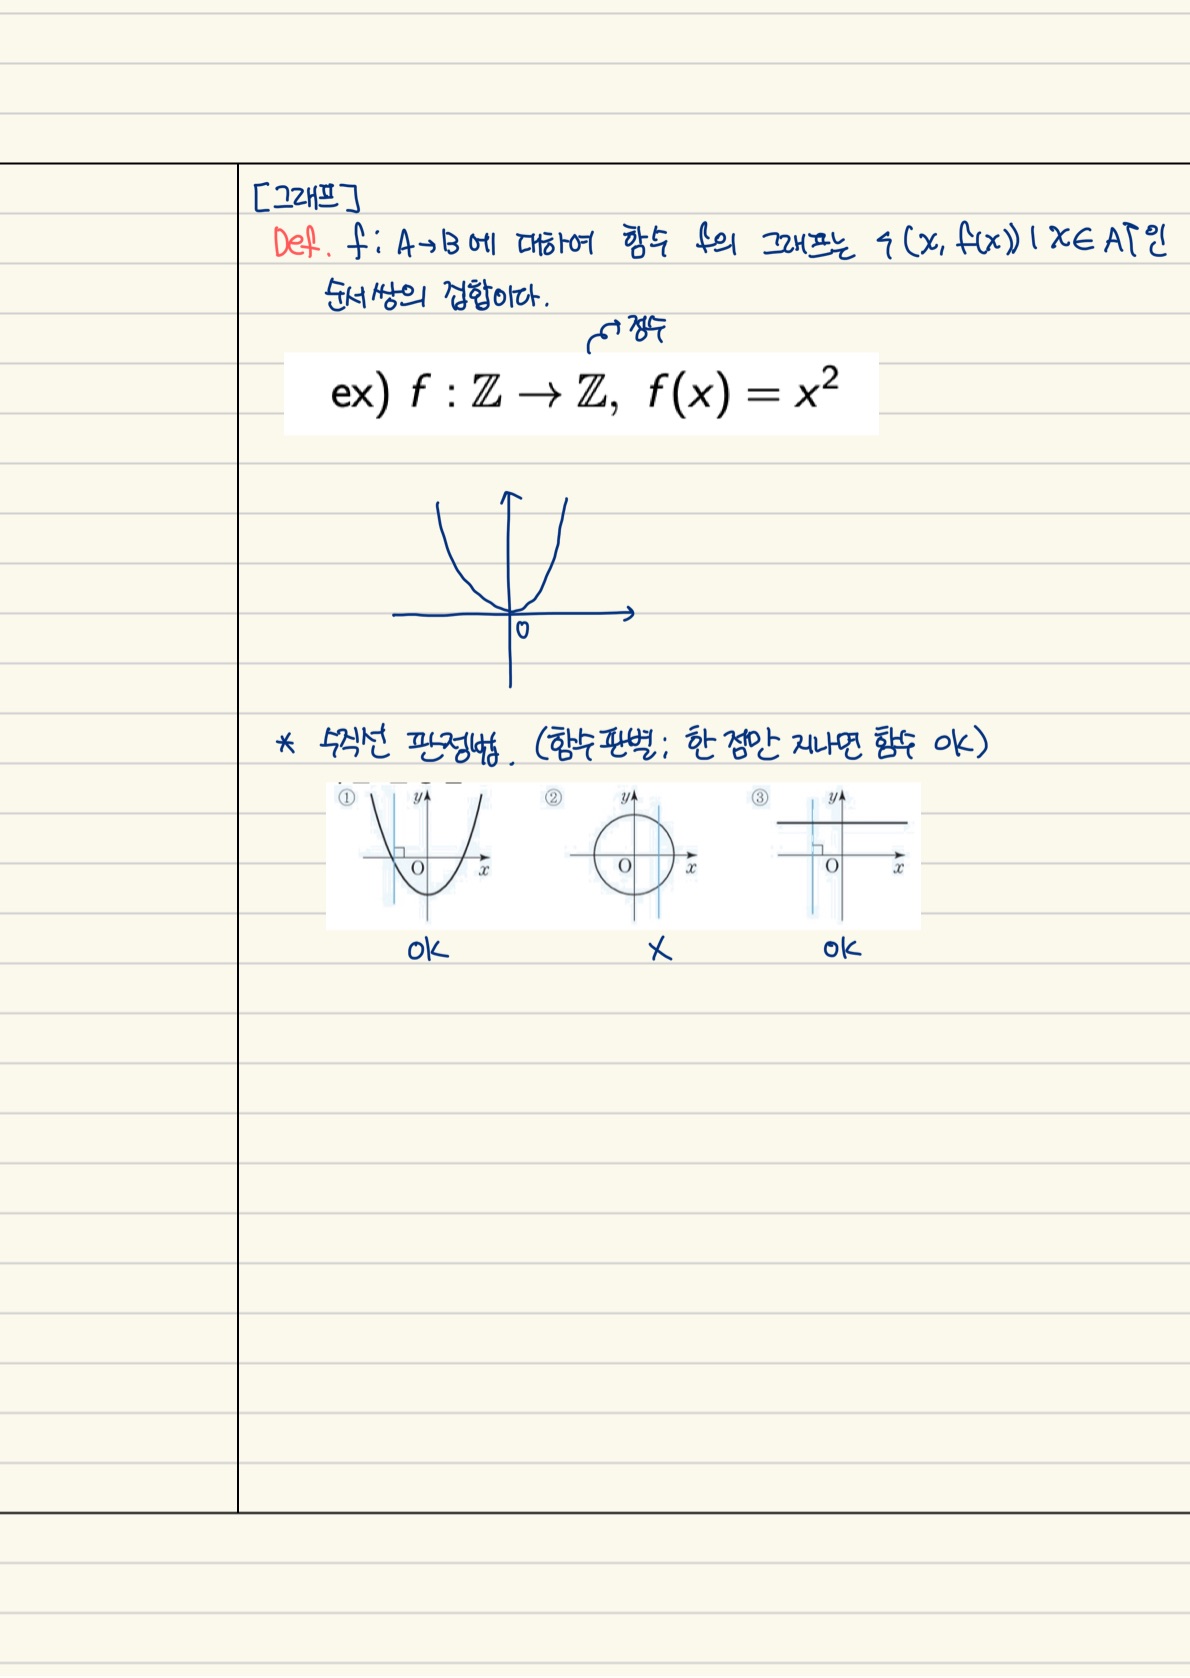 [그래프]
Def. f : A→B에 대하여 함수 f의 그래프는 {(x, f(x)) | x∈A}인
순서쌍의 집합이다.
정수
ex) f : ℤ → ℤ, f(x) = x²
0
* 수직선 판정법. (함수판별; 한 점만 지나면 함수 OK)
① y O x ② y O x ③ y O x
OK X OK